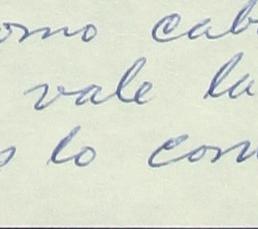 omo cab
vale la
s lo com